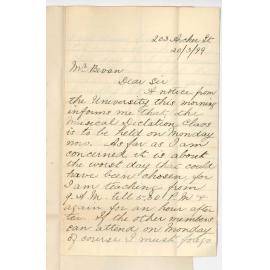 203 Archer St.
20/3/99
Mr Bevan
Dear Sir
A notice from
the University this morning
informs me that the
Musical Dictation Class
is to be held on Monday
now. As far as I am
concerned it is about
the worst day that could
have been chosen, for
I am teaching from
9 A.M. till 5.30 P.M. &
again for an hour after
tea. If the other members
can attend on Monday
of course I must forego